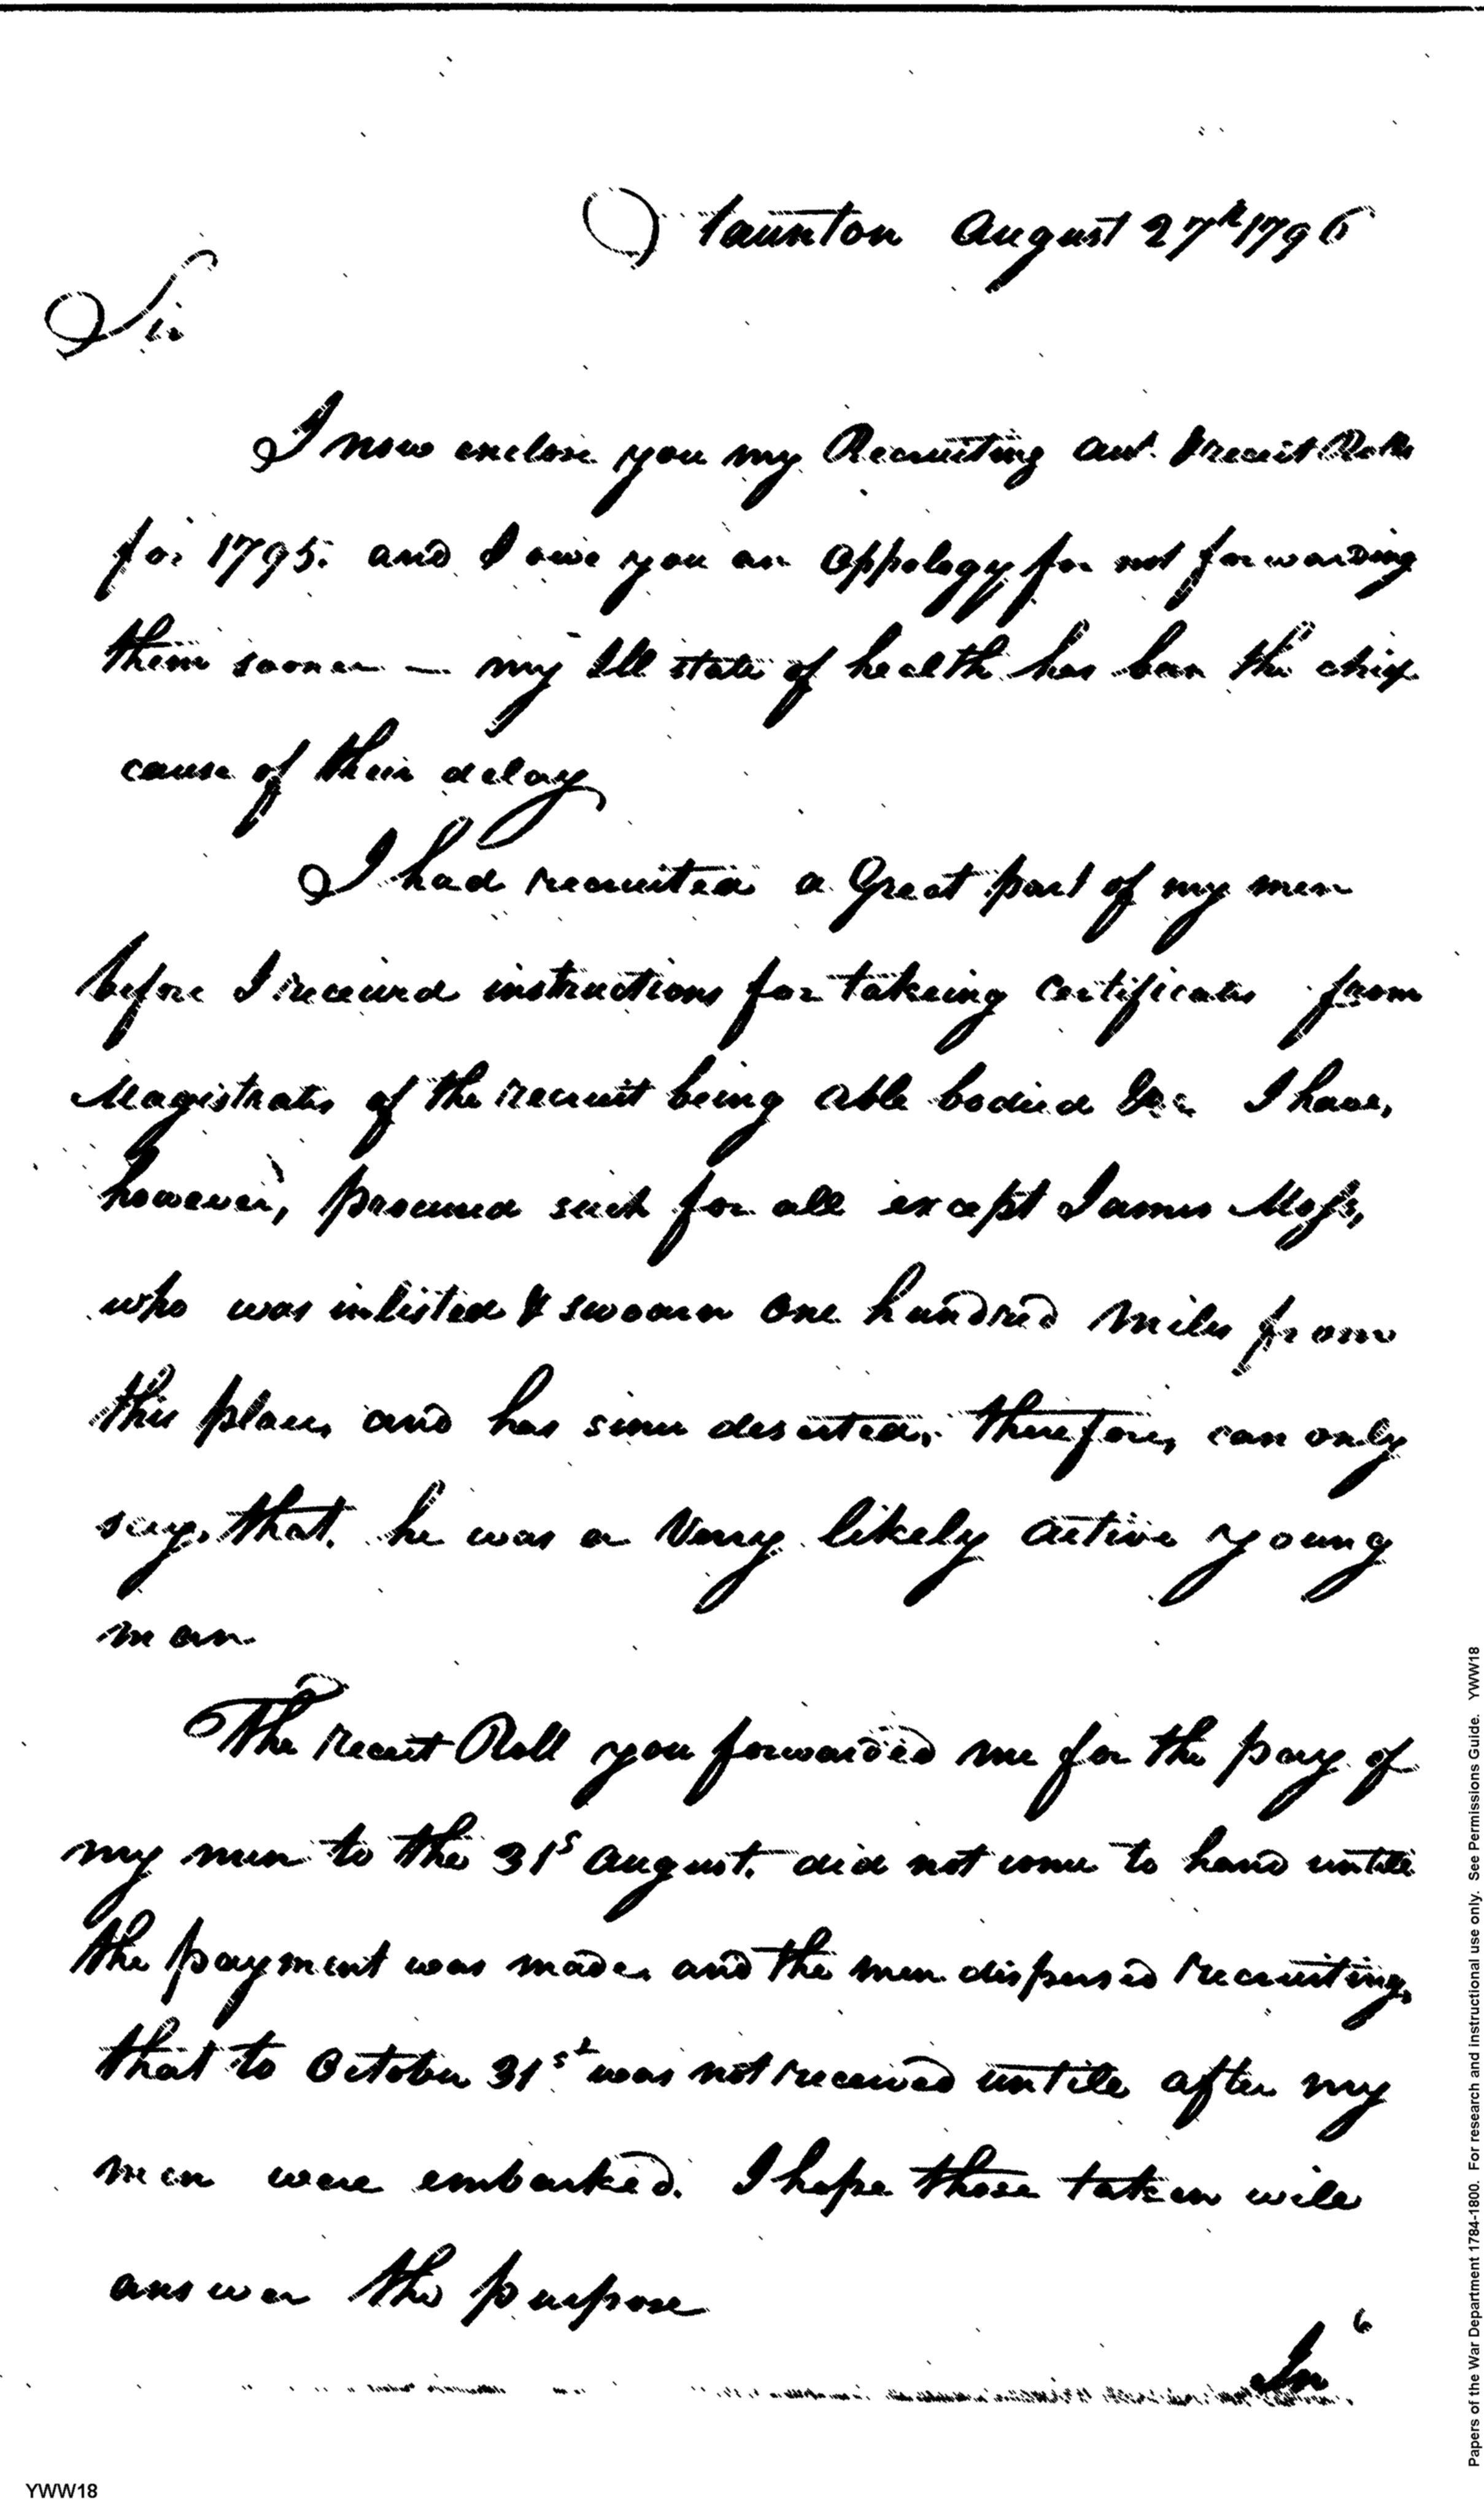 Staunton August 27th 1796
Sir
I now enclose you my Recruiting acct. & receit Rolls
for 1795. and I owe you an appology for not forwarding
them sooner — my Ill state of health has been the chief
cause of their delay
I had recruited a Great part of my men
before I received instructions for takeing certificates from
Magistrates of the recruit being able bodied &c I have,
however, procured such for all except James Moss,
who was inlisted & sworn one hundred miles from
this place, and has since deserted, therefore, can only
say, that he was a very likely active young
man
The receit Roll you forwarded me for the pay of
my men to the 31s August. did not come to hand untill
the payment was made, and the men dispersed recruiting,
that to October 31st was not received untill after my
men were embarked. I hope those taken will
answer the purpose
In
YWW18
Papers of the War Department 1784-1800. For research and instructional use only. See Permissions Guide. YWW18